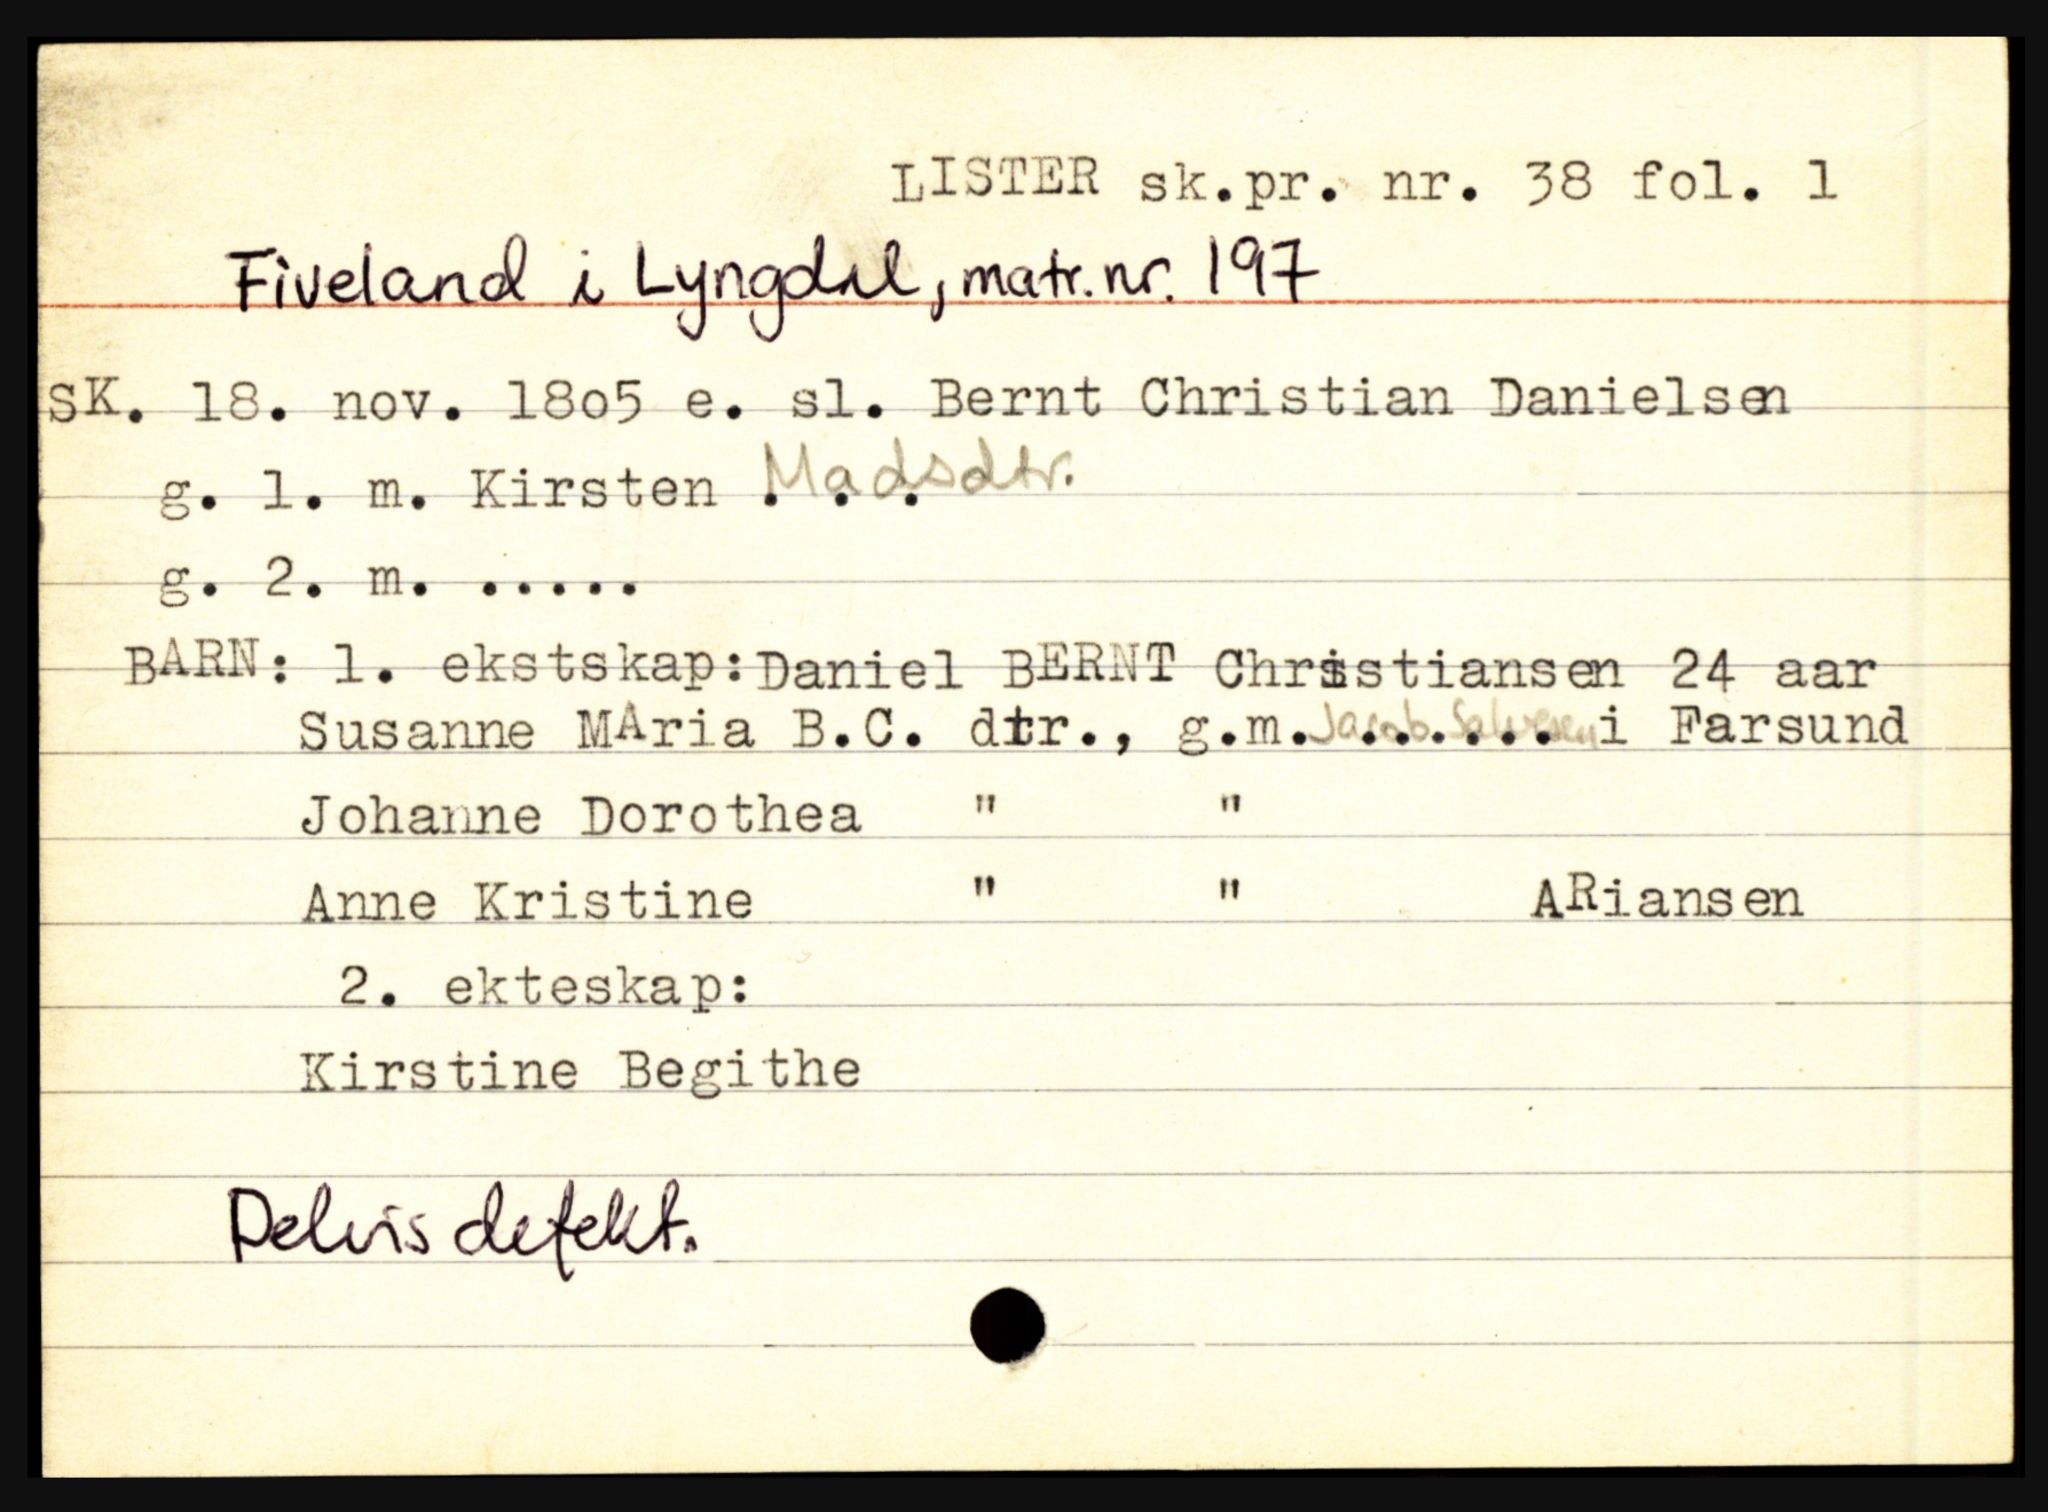 LISTER sk.pr. nr. 38 fol. 1
Fiveland i Lyngdal, matr.nr. 197
SK. 18. nov. 1805 e. sl. Bernt Christian Danielsen
g. 1. m. Kirsten . . . Madsdtr.
g. 2. m. .....
BARN: 1. ekstskap: Daniel BERNT Christiansen 24 aar
Susanne MAria B.C. dtr., g.m. Jacob Salvesen ....... i Farsund
Johanne Dorothea " "
Anne Kristine " " ARiansen
2. ekteskap:
Kirstine Begithe
Delvis defekt.